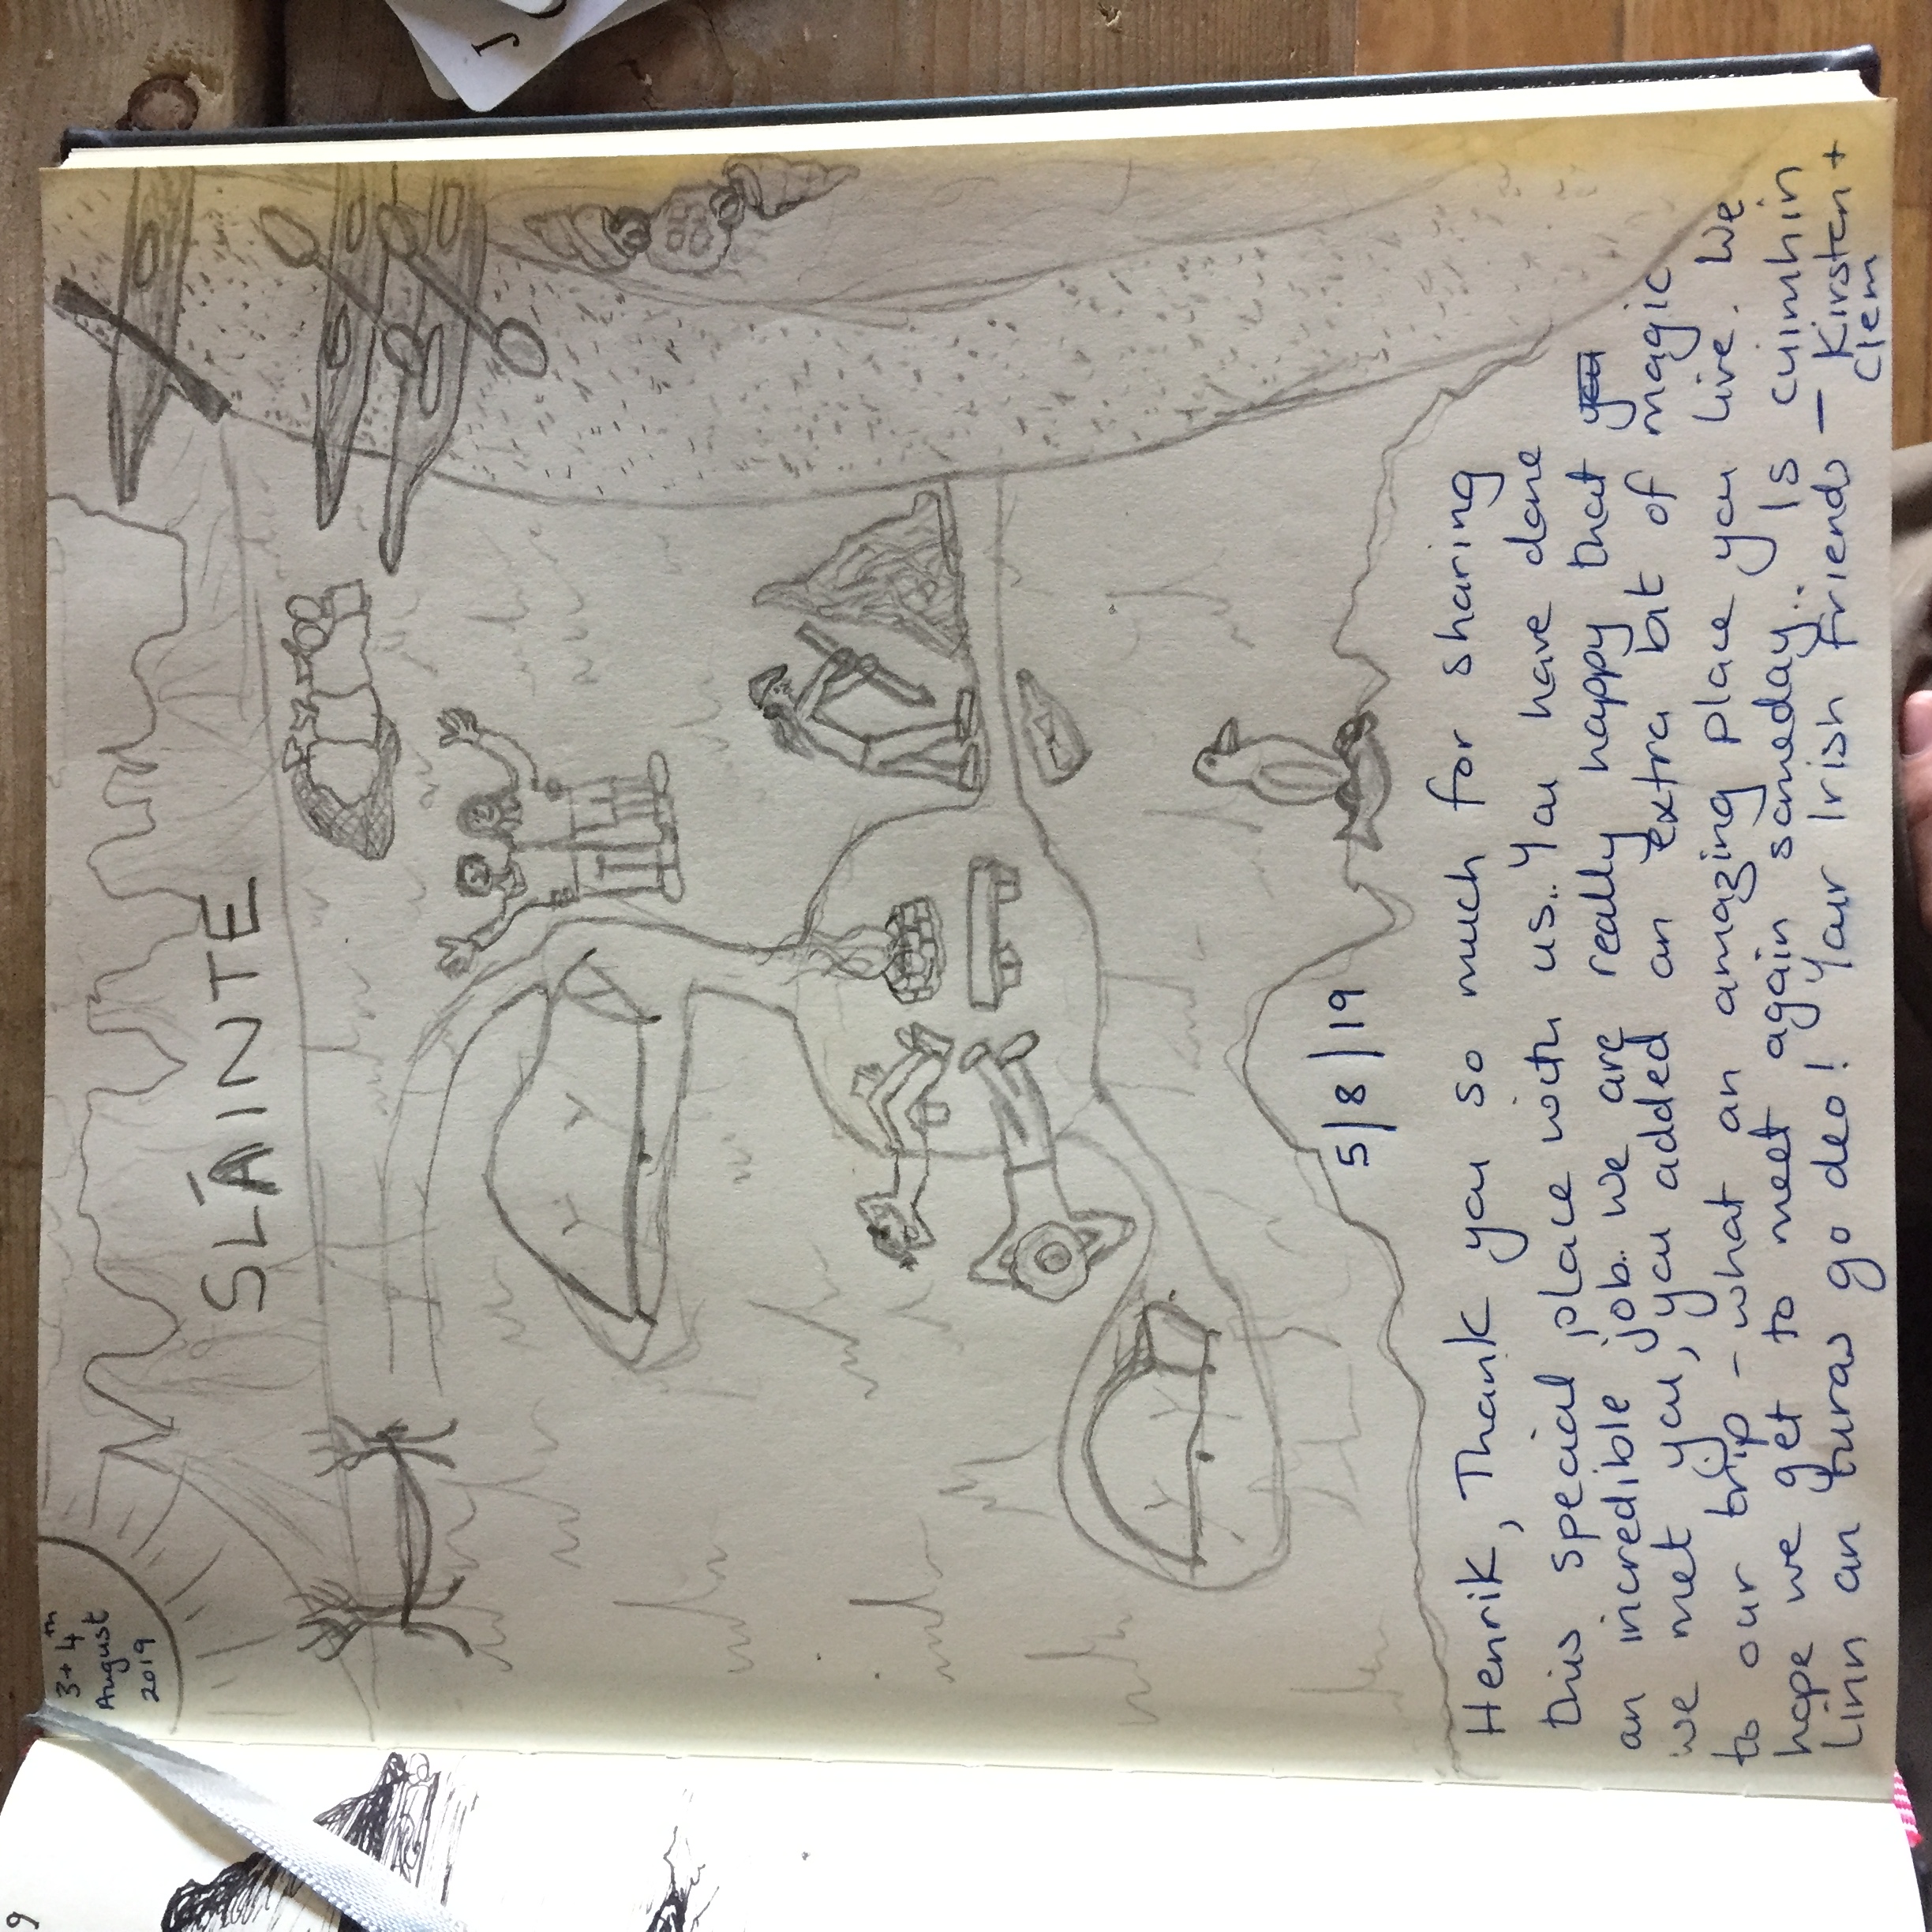 3 + 4th
August
2019
SLÁINTE
5/8/19
Henrik, Thank you so much for sharing
this special place with us.. You have done
an incredible job. We are really happy that
we met you, you added an extra bit of magic
to our trip - what an amazing place you live. We
hope we get to meet again someday.. Is cuimhin
linn an turas go deo! Your Irish friends - Kirsten +
Clem
J
9